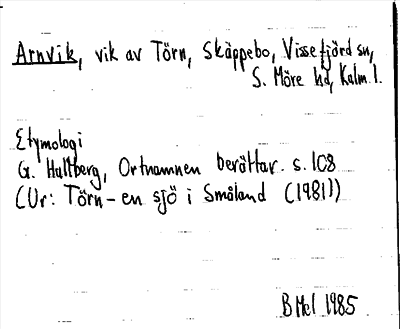 Arnvik, vik av Törn, Skäppebo, Vissefjärd sn,
S. Möre hd, Kalm. l.
Etymologi
G. Hallberg, Ortnamnen berättar. s. 108
(Ur: Törn - en sjö i Småland (1981))
BMel 1985